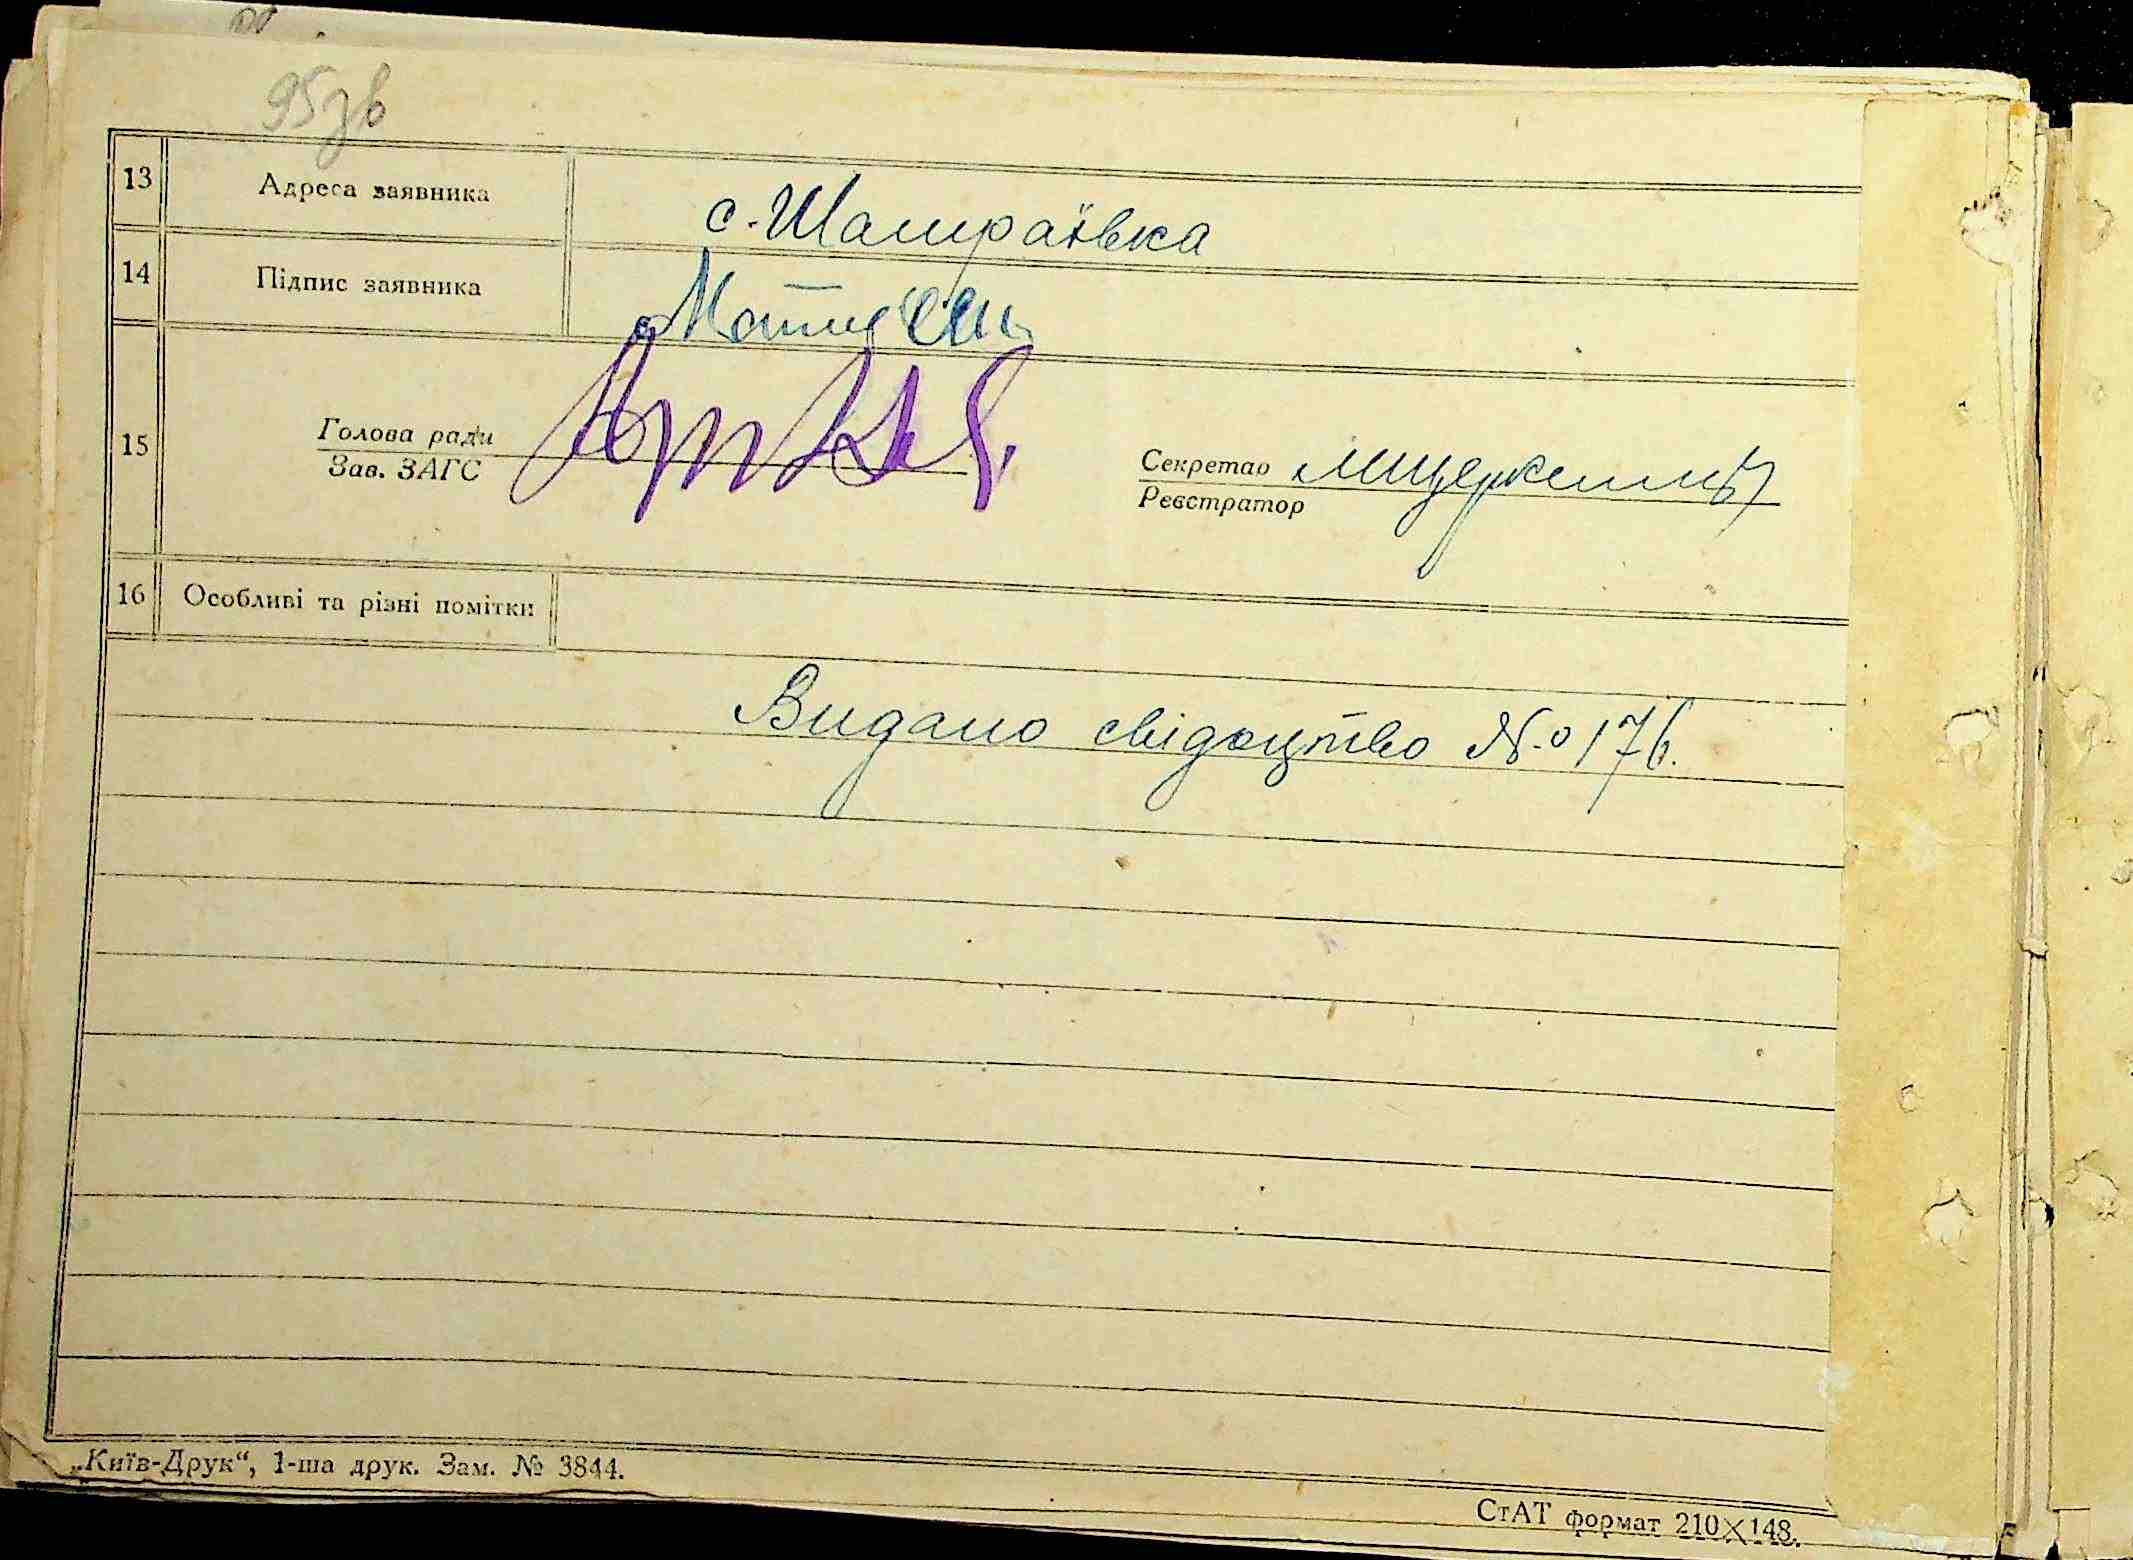 95зв
13 Адреса заявника с. Шамраївка
14 Підпис заявника
15 Голова ради Секретар
Зав. ЗАГС Реєстратор
16 Особливі та різні помітки
Видано свідоцтво № 176.
„Київ-Друк“, 1-ша друк. Зам. № 3844.
СтАТ формат 210×148.